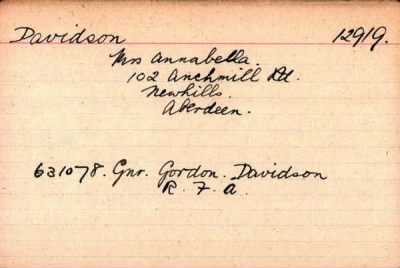 Davidson 12919.
Mrs Annabella.
102 Anchmill Rd.
Newhills.
Aberdeen.
631078. Gnr. Gordon. Davidson
R. F. A.